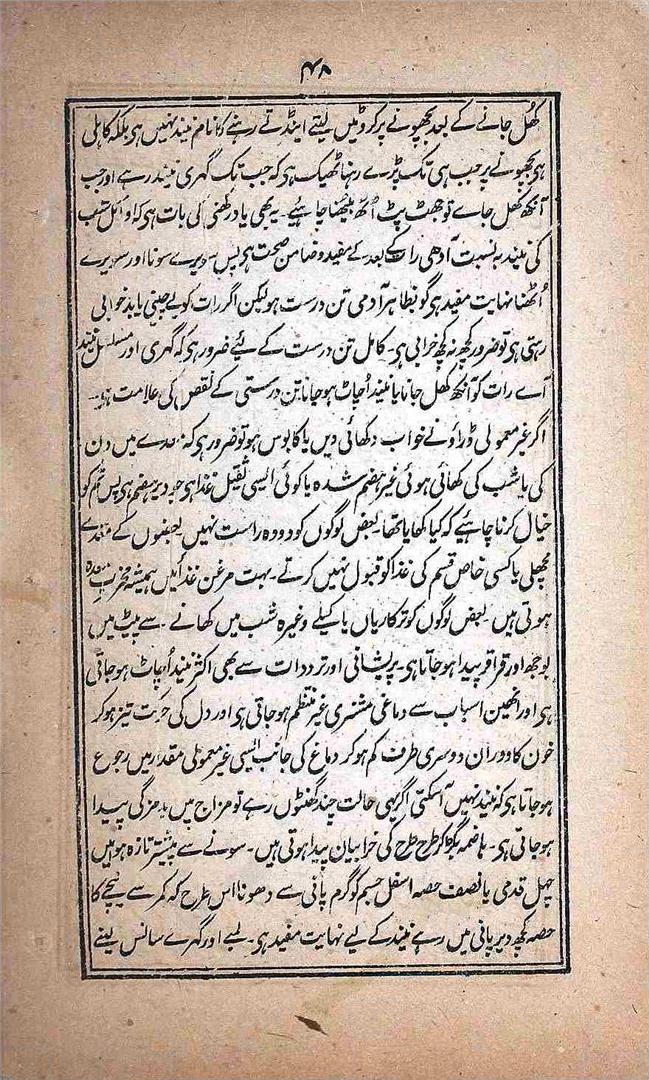 ۴۸
کھل جانے کے بعد بچھونے پر کروٹیں لیتے اینڈتے رہنے کا نام نیند نہیں ہی بلکہ کاہلی
ہی بچھونے پر جب ہی تک پڑے رہنا ٹھیک ہی کہ جب تک گہری نیند رہے اور جب
آنکھ کھل جاے تو جھٹ پٹ اُٹھ بیٹھنا چاہئیے۔ یہ بھی یاد رکھنی کی بات ہی کہ اوائل شب
کی نیند بہ نسبت آدھی رات کے بعد کے مفید و ضامن صحت ہی پس سویرے سونا اور سویرے
اُٹھنا نہایت مفید ہی گو بظاہر آدمی تن درست ہو لیکن اگر رات کو بے چینی یا بد خوابی
رہتی ہی تو ضرور کچھ نہ کچھ خرابی ہی۔ کامل تن درست کے لئے ضرور ہی کہ گہری اور مسلسل نیند
آے رات کو آنکھ کھل جانا یا نیند اُچاٹ ہو جانا تن درستی کے نقص کی علامت ہے۔
اگر غیر معمولی ڈراؤنے خواب دکھائی دیں یا کابوس ہو تو ضرور ہی کہ معدے میں دن
کی یا شب کی کھائی ہوئی غیر ہضم شدہ یا کوئی ایسی ثقیل غذا ہی جو دیر ہضم ہی پس تم کو
خیال کرنا چاہئیے کہ کیا کھایا تھا۔ بعض لوگوں کو دودہ راست نہیں بعضوں کے معدے
مچھلی یا کسی خاص قسم کی غذا کو قبول نہیں کرتے۔ بہت مرغن غذائیں ہمیشہ مخرب معدہ
ہوتی ہیں۔ بعض لوگوں کو ترکاریاں یا کیلے وغیرہ شب میں کھانے۔ سے پیٹ میں
بوجھ اور قراقر پیدا ہو جاتا ہی۔ پریشانی اور ترددات سے بھی اکثر نیند اُچاٹ ہو جاتی
ہی اور انھین اسباب سے دماغی مشنری غیر منتظم ہو جاتی ہی اور دل کی حرکت تیز ہو کر
خون کا دوران دوسری طرف کم ہو کر دماغ کی جانب ایسی غیر معمولی مقدار میں رجوع
ہو جاتا ہی کہ نیند نہیں آ سکتی اگر یہی حالت چند گھنٹوں رہے تو مزاج میں بدمزگی پیدا
ہو جاتی ہی۔ ہاضمہ بگڑ کر طرح طرح کی خرابیان پیدا ہوتی ہیں۔ سونے سے پیشتر تازہ ہوا میں
چہل قدمی یا نصف حصہ اسفل جسم کو گرم پانی سے دھونا اس طرح کہ کمر سے نیچے کا
حصہ کچھ دیر پانی میں رہے نیند کے لیے نہایت مفید ہی۔ لمبے اور گہرے سانس لینے